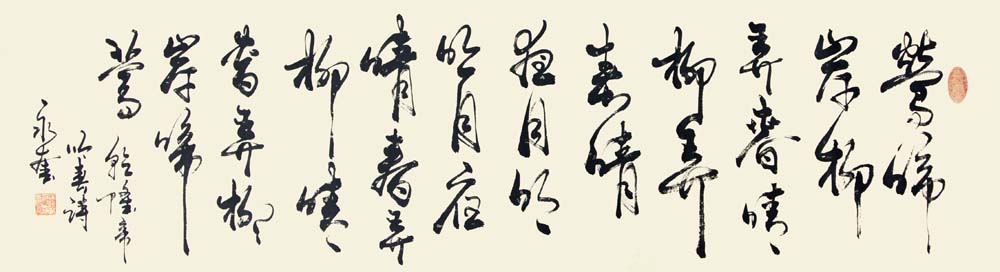 鶯啼
岸柳
弄春晴
柳弄
春晴
夜月明
明月夜
晴春弄
柳晴
春弄柳
岸啼
鶯 乾隆帝
吟春詩
永奎